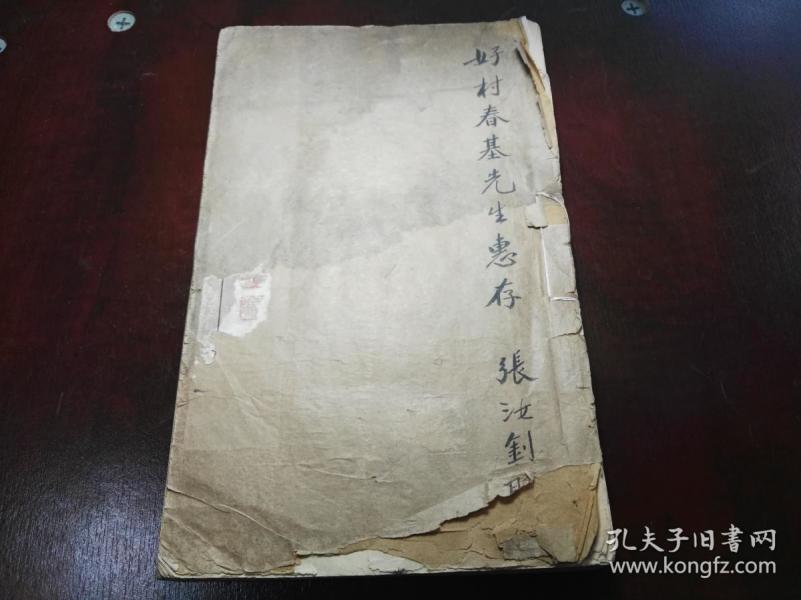 好村春基先生惠存
張汝釗
孔夫子旧書网
www.kongfz.com